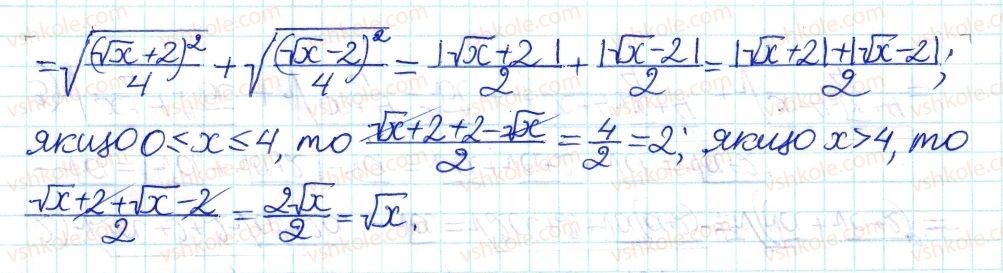 = √((√x + 2)²/4) + √((√x - 2)²/4) = |√x + 2|/2 + |√x - 2|/2 = (|√x + 2| + |√x - 2|)/2;
якщо 0 ≤ x ≤ 4, то (√x + 2 + 2 - √x)/2 = 4/2 = 2; якщо x > 4, то
(√x + 2 + √x - 2)/2 = 2√x/2 = √x.